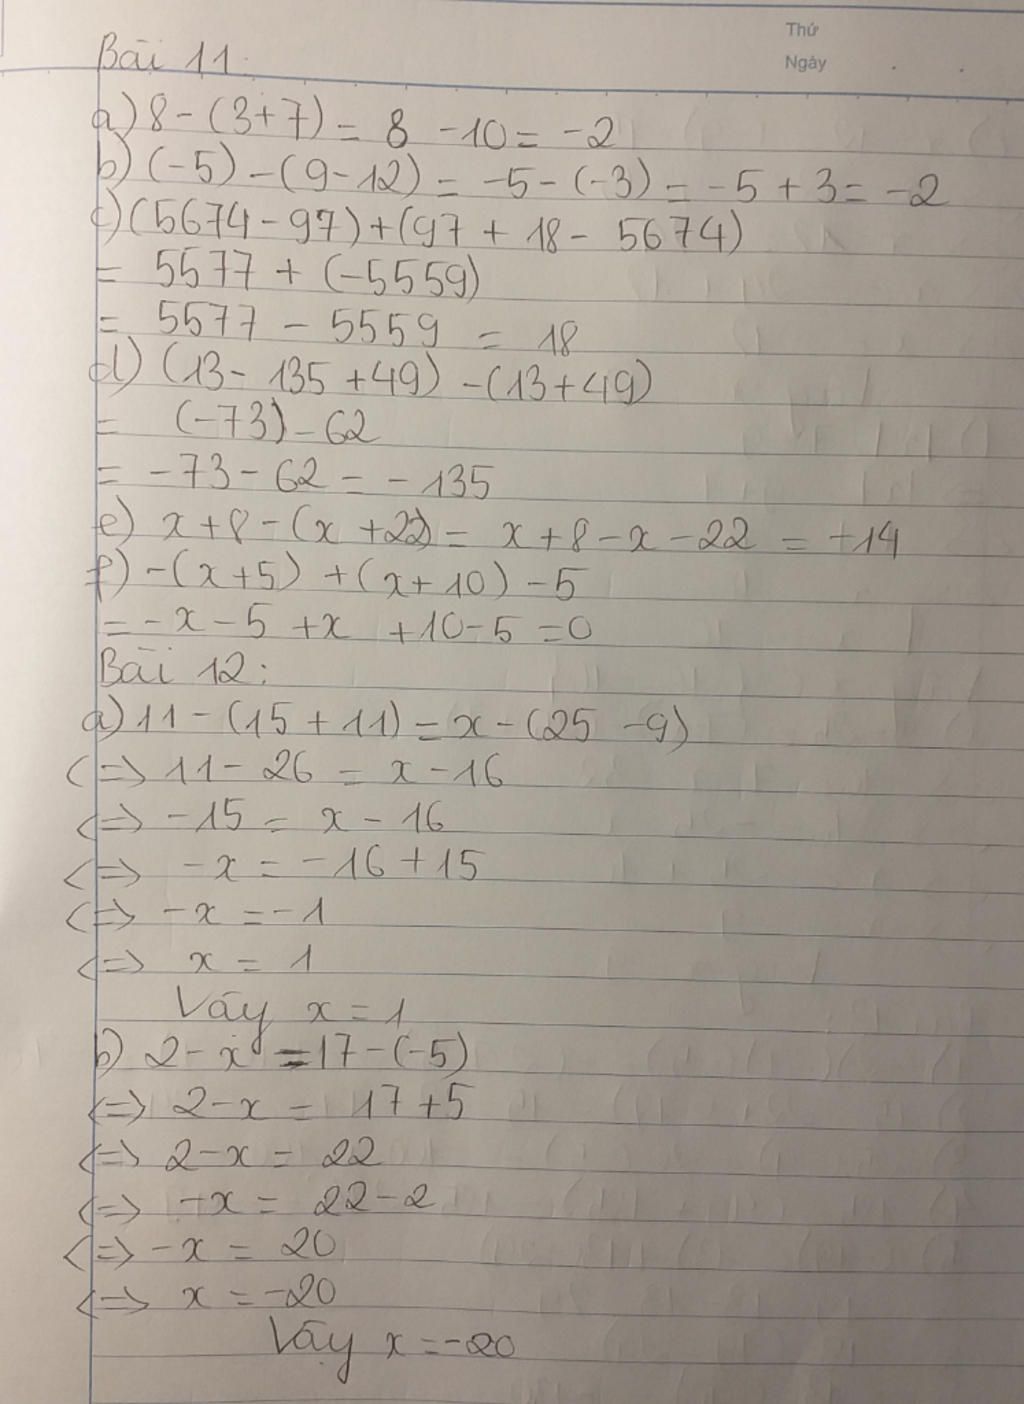 Thứ
Ngày
Bài 11:
a) 8 - (3+7) = 8 - 10 = -2
b) (-5) - (9-12) = -5 - (-3) = -5 + 3 = -2
c) (5674 - 97) + (97 + 18 - 5674)
= 5577 + (-5559)
= 5577 - 5559 = 18
d) (13 - 135 + 49) - (13 + 49)
= (-73) - 62
= -73 - 62 = -135
e) x + 8 - (x + 22) = x + 8 - x - 22 = -14
f) -(x+5) + (x+10) - 5
= -x - 5 + x + 10 - 5 = 0
Bài 12:
a) 11 - (15 + 11) = x - (25 - 9)
<=> 11 - 26 = x - 16
<=> -15 = x - 16
<=> -x = -16 + 15
<=> -x = -1
<=> x = 1
Vậy x = 1
b) 2 - x = 17 - (-5)
<=> 2 - x = 17 + 5
<=> 2 - x = 22
<=> -x = 22 - 2
<=> -x = 20
<=> x = -20
Vậy x = -20